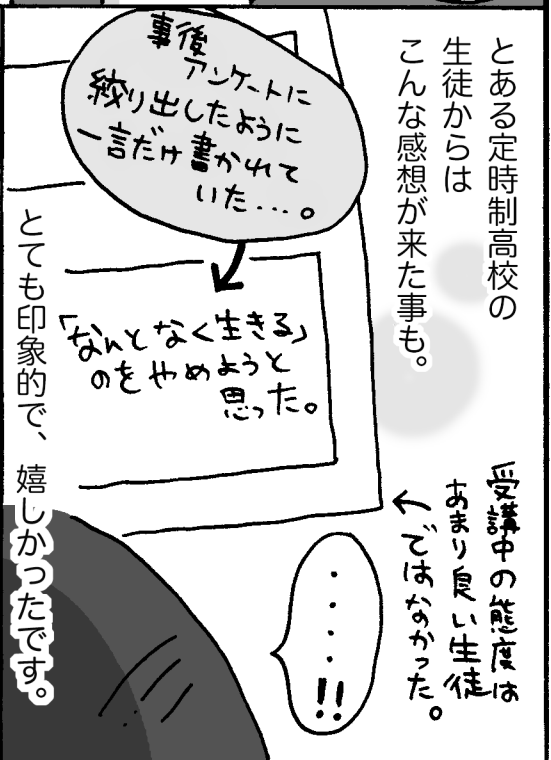 とある定時制高校の
生徒からは
こんな感想が来た事も。
事後
アンケートに
絞り出したように
一言だけ書かれて
いた...。
「なんとなく生きる」
のをやめようと
思った。
受講中の態度は
あまり良い生徒
ではなかった。
....!!
とても印象的で、嬉しかったです。